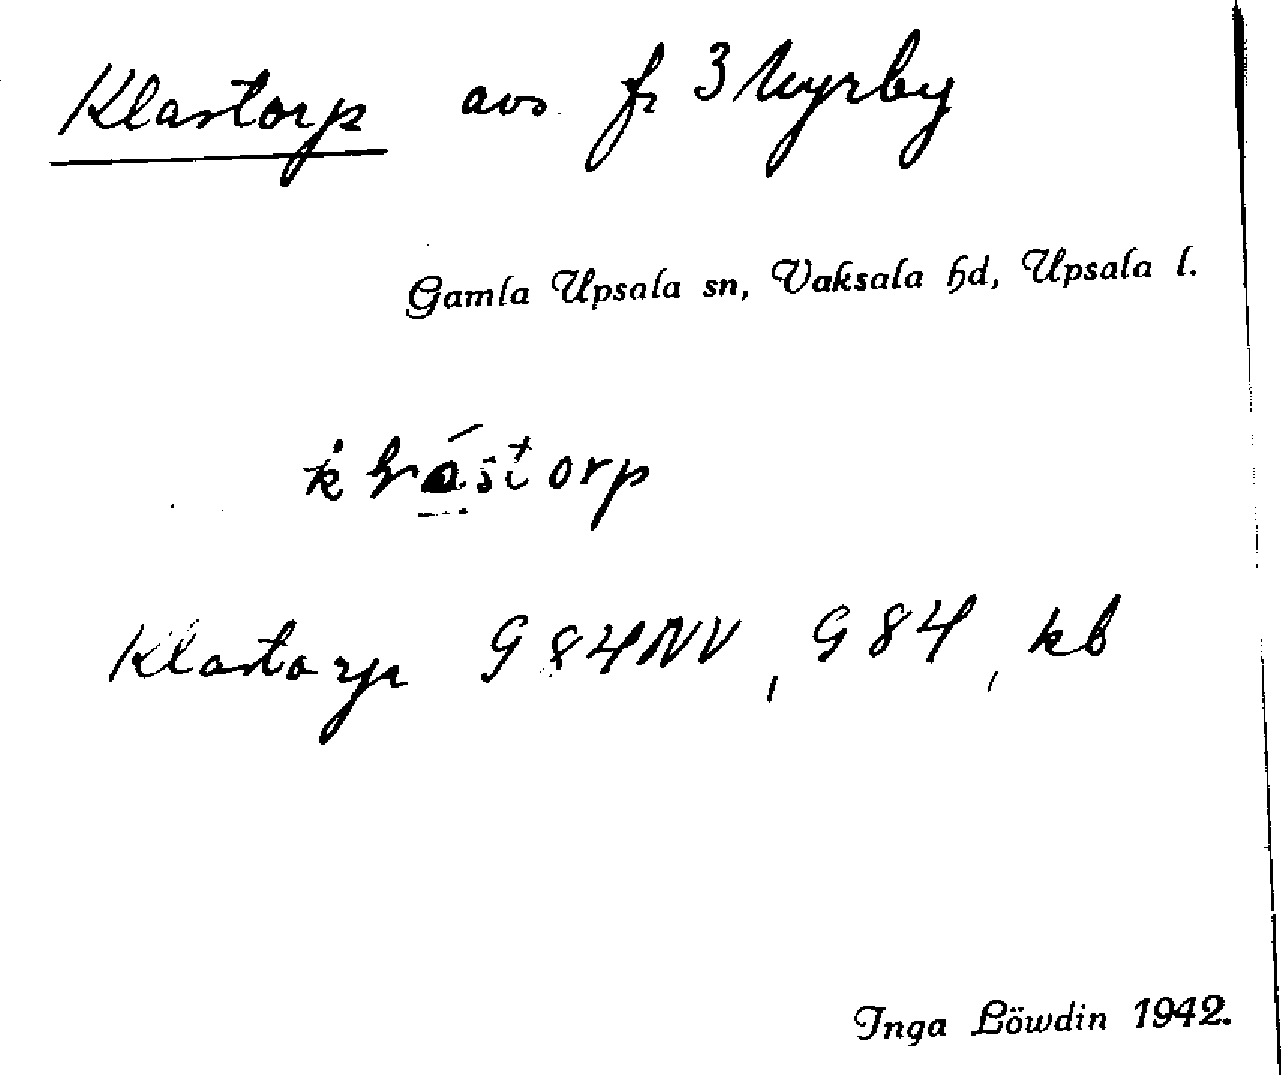 Klastorp avs. fr 3 Myrby
Gamla Upsala sn, Vaksala hd, Upsala l.
Klastorp G 84 NV, G 84, kb
Inga Löwdin 1942.